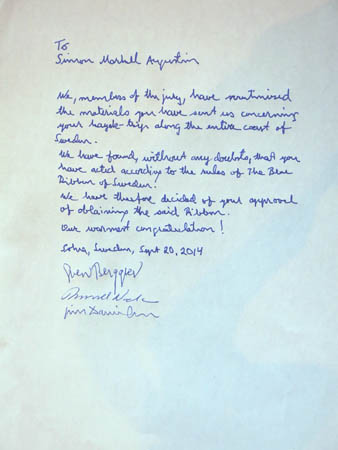 To
Simon
We, members of the jury, have scrutinised
the materials you have sent us concerning
your kayak-trip along the entire coast of
Sweden.
We have found, without any doubts, that you
have acted according to the rules of The Blue
Ribbon of Sweden!
We have therefore decided of your approval
of obtaining the said Ribbon.
Our warmest congratulation!
Sweden, Sept 20, 2014
Sven